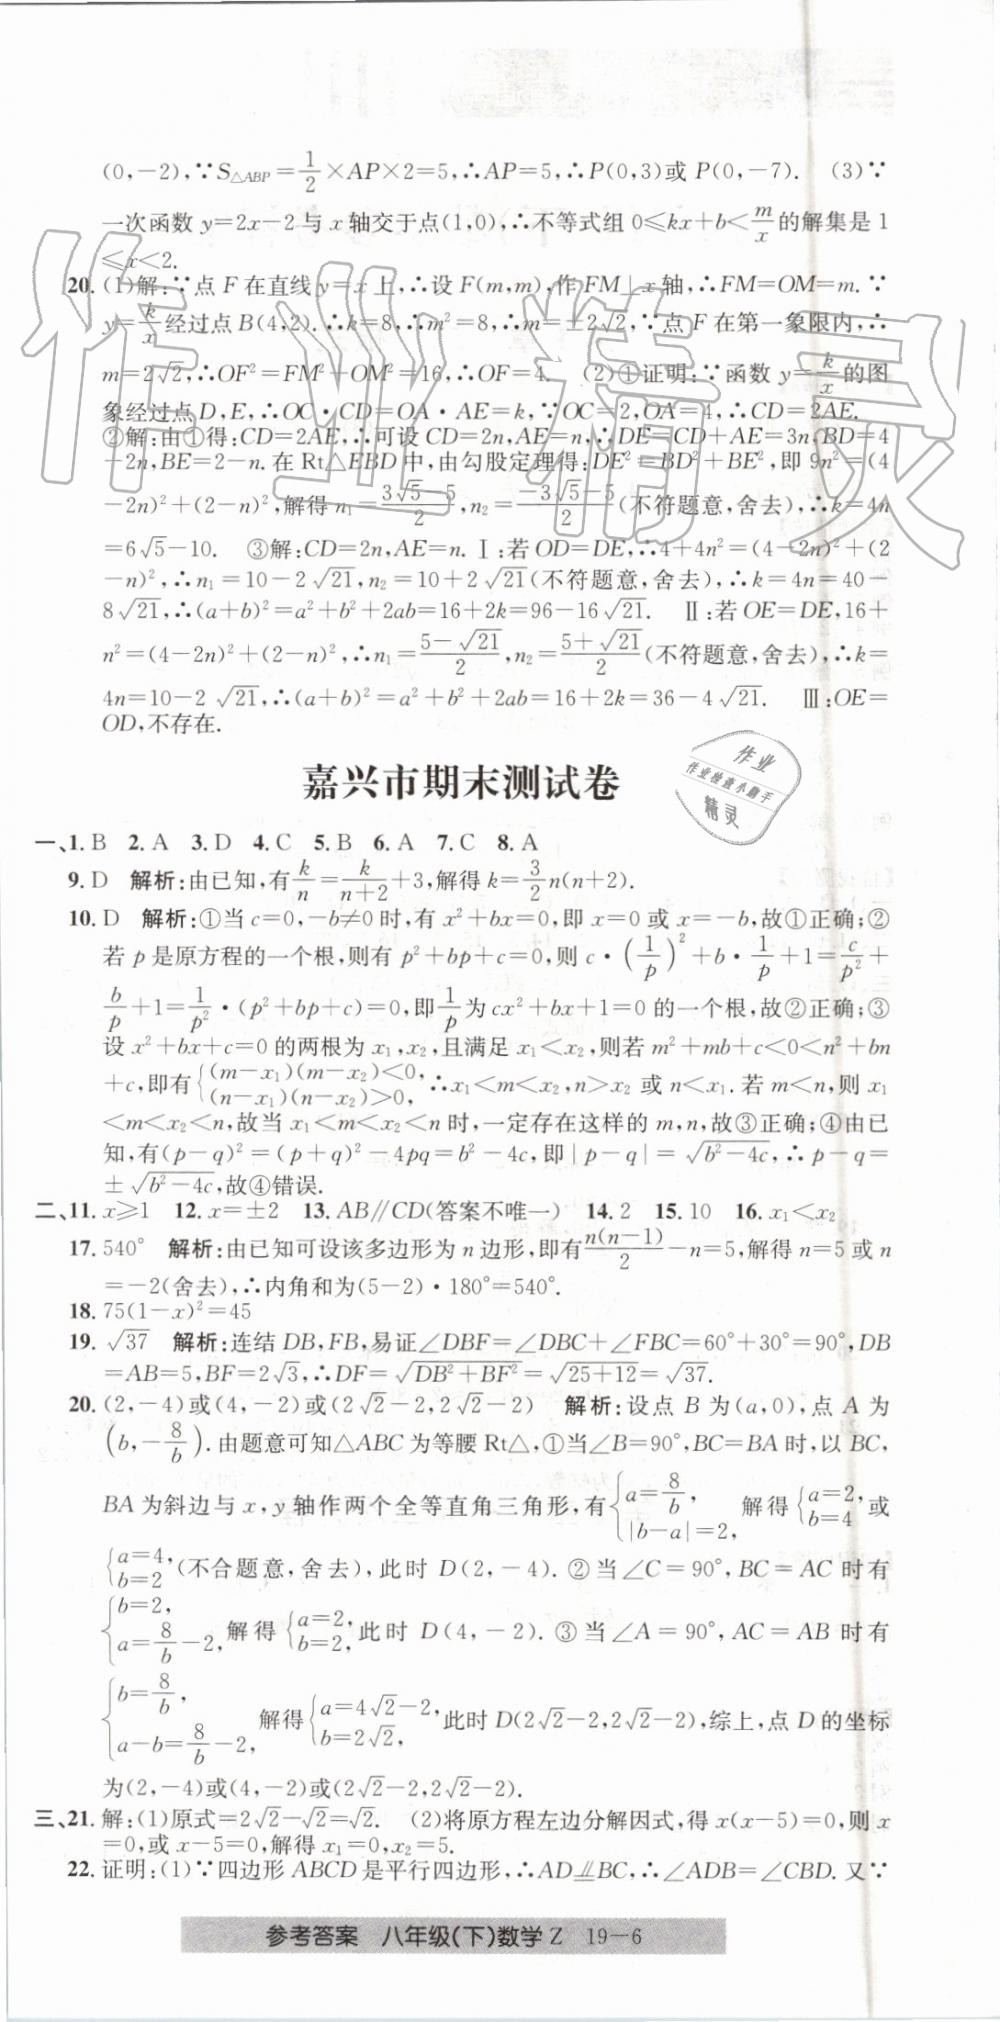 (0,-2),∵S△ABP=1/2×AP×2=5,∴AP=5,∴P(0,3)或 P(0,-7). (3)∵
一次函数 y=2x-2与 x 轴交于点(1,0),∴不等式组 0≤kx+b<m/x的解集是 1
≤x<2.
20. (1)解:∵点 F 在直线 y=x 上,∴设 F(m,m),作 FM⊥x 轴,∴FM=OM=m. ∵
y=k/x经过点 B(4,2).∴k=8,∴m²=8,∴m=±2√2,∵点 F 在第一象限内,∴
m=2√2,∴OF²=FM²+OM²=16,∴OF=4. (2)①证明:∵函数 y=k/x的图
象经过点 D,E,∴OC·CD=OA·AE=k,∵OC=2,OA=4,∴CD=2AE.
②解:由①得:CD=2AE,∴可设 CD=2n,AE=n,∴DE=CD+AE=3n,BD=4
-2n,BE=2-n.在 Rt△EBD 中,由勾股定理得:DE²=BD²+BE²,即 9n²=(4
-2n)²+(2-n)²,解得 n₁=(3√5-5)/2,n₂=(-3√5-5)/2(不符题意,舍去),∴k=4n
=6√5-10. ③解:CD=2n,AE=n.Ⅰ:若 OD=DE,∴4+4n²=(4-2n)²+(2
-n)²,∴n₁=10-2√21,n₂=10+2√21(不符题意,舍去),∴k=4n=40-
8√21,∴(a+b)²=a²+b²+2ab=16+2k=96-16√21. Ⅱ:若 OE=DE,16+
n²=(4-2n)²+(2-n)²,∴n₁=(5-√21)/2,n₂=(5+√21)/2(不符题意,舍去),∴k=
4n=10-2√21,∴(a+b)²=a²+b²+2ab=16+2k=36-4√21. Ⅲ:OE=
OD,不存在.
嘉兴市期末测试卷
一、1. B 2. A 3. D 4. C 5. B 6. A 7. C 8. A
9. D 解析:由已知,有k/n=k/(n+2)+3,解得 k=3/2n(n+2).
10. D 解析:①当 c=0,-b≠0 时,有 x²+bx=0,即 x=0 或 x=-b,故①正确;②
若 p 是原方程的一个根,则有 p²+bp+c=0,则 c·(1/p)²+b·1/p+1=c/p²+
b/p+1=1/p²·(p²+bp+c)=0,即1/p为 cx²+bx+1=0 的一个根,故②正确;③
设 x²+bx+c=0 的两根为 x₁,x₂,且满足 x₁<x₂,则若 m²+mb+c<0<n²+bn
+c,即有{(m-x₁)(m-x₂)<0, (n-x₁)(n-x₂)>0,∴x₁<m<x₂,n>x₂ 或 n<x₁.若 m<n,则 x₁
<m<x₂<n,故当 x₁<m<x₂<n 时,一定存在这样的 m,n,故③正确;④由已
知,有(p-q)²=(p+q)²-4pq=b²-4c,即|p-q|=√(b²-4c),∴p-q=
±√(b²-4c),故④错误.
二、11. x≥1 12. x=±2 13. AB∥CD(答案不唯一) 14. 2 15. 10 16. x₁<x₂
17. 540° 解析:由已知可设该多边形为 n 边形,即有n(n-1)/2-n=5,解得 n=5 或 n
=-2(舍去),∴内角和为(5-2)·180°=540°.
18. 75(1-x)²=45
19. √37 解析:连结 DB,FB,易证∠DBF=∠DBC+∠FBC=60°+30°=90°,DB
=AB=5,BF=2√3,∴DF=√(DB²+BF²)=√(25+12)=√37.
20. (2,-4)或(4,-2)或(2√2-2,2√2-2) 解析:设点 B 为(a,0),点 A 为
(b,-8/b).由题意可知△ABC 为等腰 Rt△,①当∠B=90°,BC=BA 时,以 BC,
BA 为斜边与 x,y 轴作两个全等直角三角形,有{a=8/b, |b-a|=2, 解得{a=2, b=4 或
{a=4, b=2(不合题意,舍去),此时 D(2,-4). ②当∠C=90°,BC=AC 时有
{b=2, a=8/b-2, 解得{a=2, b=2,此时 D(4,-2). ③当∠A=90°,AC=AB 时有
{b=8/b, a-b=8/b-2, 解得{a=4√2-2, b=2√2,此时 D(2√2-2,2√2-2),综上,点 D 的坐标
为(2,-4)或(4,-2)或(2√2-2,2√2-2).
三、21. 解:(1)原式=2√2-√2=√2. (2)将原方程左边分解因式,得 x(x-5)=0,则 x
=0,或 x-5=0,解得 x₁=0,x₂=5.
22. 证明:(1)∵四边形 ABCD 是平行四边形,∴AD∥BC,∴∠ADB=∠CBD. 又∵
参考答案 八年级(下)数学 Z 19-6
作业精灵
作业
作业检查小助手
精灵